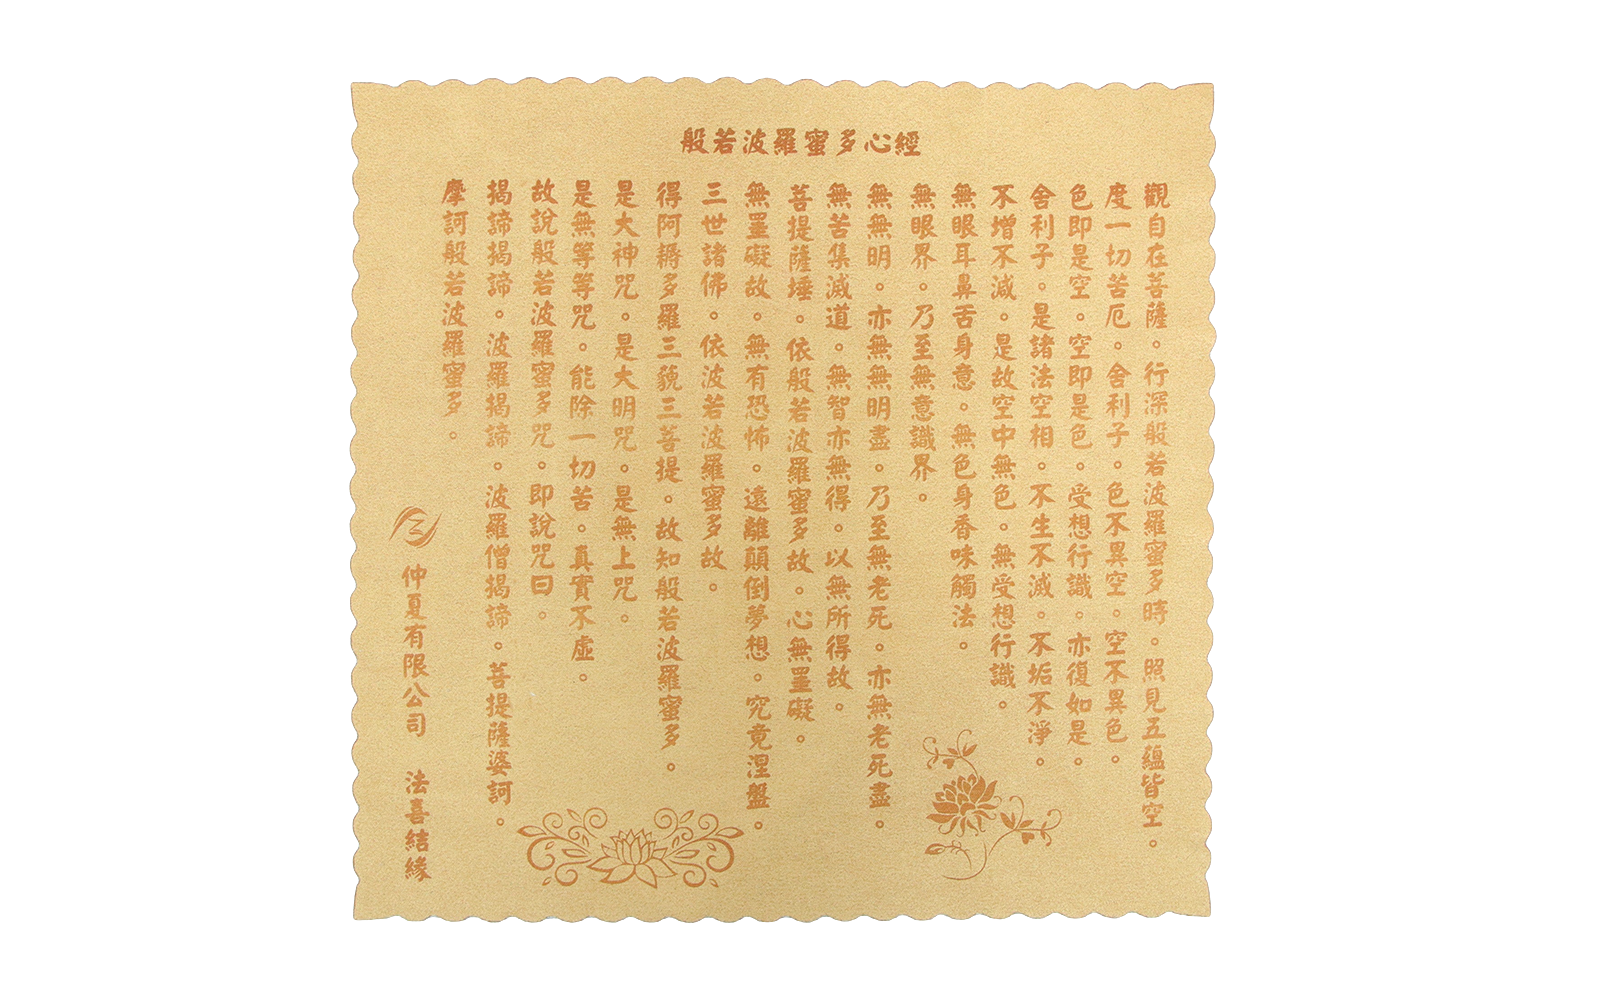 般若波羅蜜多心經
觀自在菩薩。行深般若波羅蜜多時。照見五蘊皆空。
度一切苦厄。舍利子。色不異空。空不異色。
色即是空。空即是色。受想行識。亦復如是。
舍利子。是諸法空相。不生不滅。不垢不淨。
不增不減。是故空中無色。無受想行識。
無眼耳鼻舌身意。無色身香味觸法。
無眼界。乃至無意識界。
無無明。亦無無明盡。乃至無老死。亦無老死盡。
無苦集滅道。無智亦無得。以無所得故。
菩提薩埵。依般若波羅蜜多故。心無罣礙。
無罣礙故。無有恐怖。遠離顛倒夢想。究竟涅盤。
三世諸佛。依波若波羅蜜多故。
得阿耨多羅三藐三菩提。故知般若波羅蜜多。
是大神咒。是大明咒。是無上咒。
是無等等咒。能除一切苦。真實不虛。
故說般若波羅蜜多咒。即說咒曰。
揭諦揭諦。波羅揭諦。波羅僧揭諦。菩提薩婆訶。
摩訶般若波羅蜜多。
仲夏有限公司 法喜結緣